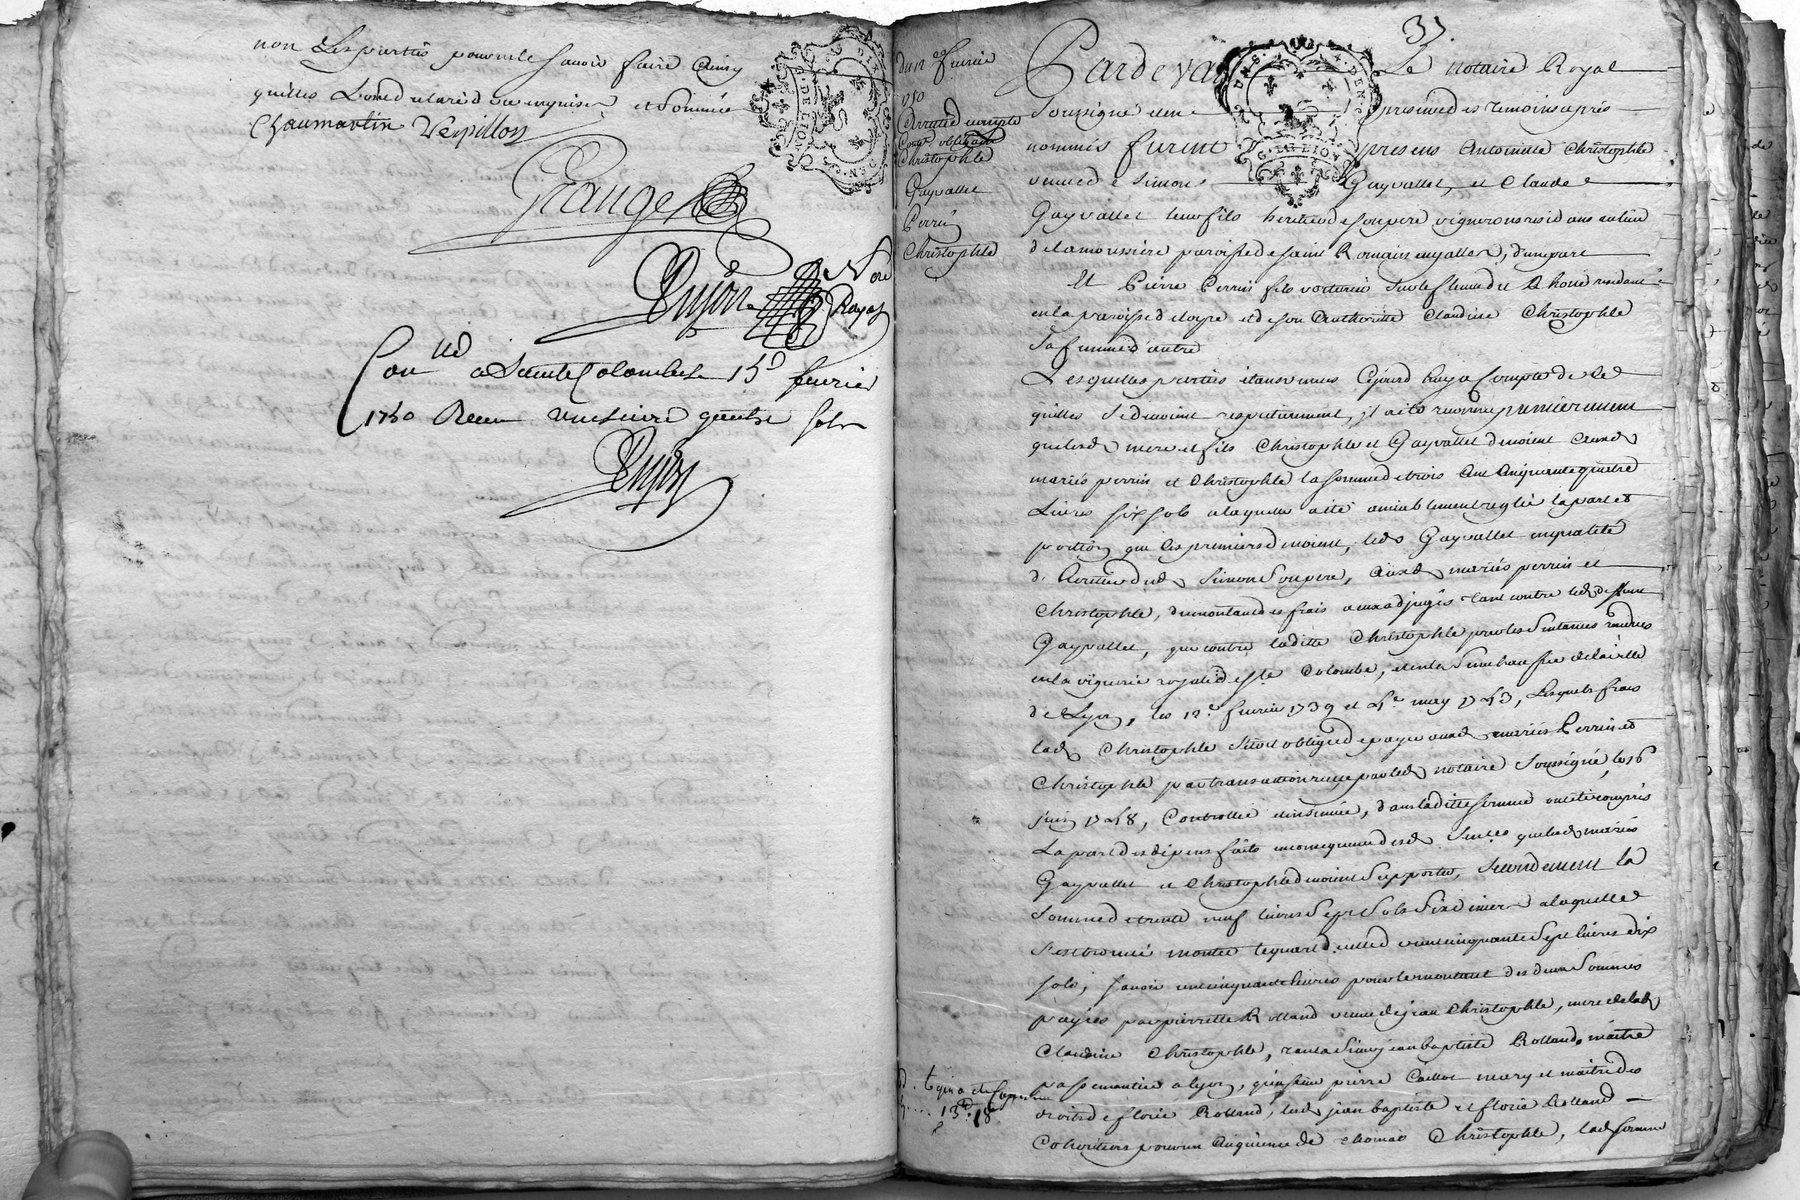 non les parties pour ne le savoir faire ainsy
quelles l'ont declaré de ce enquises et sommées
Chaumartin Verpillon
Grange
Dujon Nore
Royal
Conlle a Sainte Colombe le 15d fevrier
1750 Receu une livre quatre sols
Dujon
du 12e fevrier
1750
Arrette de compte
Contt obligation
Christophle
Gayvallet
Perrin
Christophle
37.
Pardevant Le notaire Royal
Soussigné et en presence des temoins après
nommés furent presens Antoinette Christophle
veuve de Simon Gayvallet, et Claude
Gayvallet leur fils heritier de son pere vignerons residans au lieu
de la moussiere paroisse de saint Romain en gallier, d'une part
Et Pierre Perrin fils voiturier sur le fleuve du Rhone residant
en la paroisse de loyre et de son authorité Claudine Christophle
sa femme d'autre
Lesquelles parties etans venues cejourd'huy a compte de ce
quelles se devoient respectivement, il a eté reconnu premierement
que lesd mere et fils Christophle et Gayvallet devoient auxd
mariés perrin et Christophle la somme de trois cent cinquante quatre
Livres six sols a laquelle a eté amiablement reglé la part et
portion que les premiers devoient, led Gayvallet en qualité
d'heritier dud Simon son pere, auxd mariés perrin et
Christophle, du montant des frais a eux adjugés tant contre led Simon
Gayvallet, que contre laditte Christophle par les Sentences rendues
en la viguerie royale de ste Colombe, et en la Senechaussée de la ville
de Lyon, les 12e fevrier 1739 et 4e may 1743, Lesquels frais
lad Christophle s'etoit obligée de payer auxd mariés Perrin et
Christophle par transaction reçue par led notaire soussigné le 16
juin 1748, Controllée et insinuée, dans laditte somme ont eté compris
La part des depens faits en consequence desd Sentces que lesd mariés
Gayvallet et Christophle devoient supporter, Secondement la
somme de trente neuf livres sept sols six deniers a laquelle
s'est trouvé monter le quart de celle de cent cinquante sept livres dix
sols, savoir cent cinquante livres pour le montant des deux sommes
payées par pierrette Rolland veuve de jean Christophle, mere de lad
Claudine Christophle, tant a Simon jean baptiste Rolland maitre
passementier a lyon, qu'au sieur pierre Caillot mary et maitre des
droits de florie Rolland, lesd jean baptiste et florie Rolland
Coheritiers pour un cinquieme de thomas Christophle, lad somme